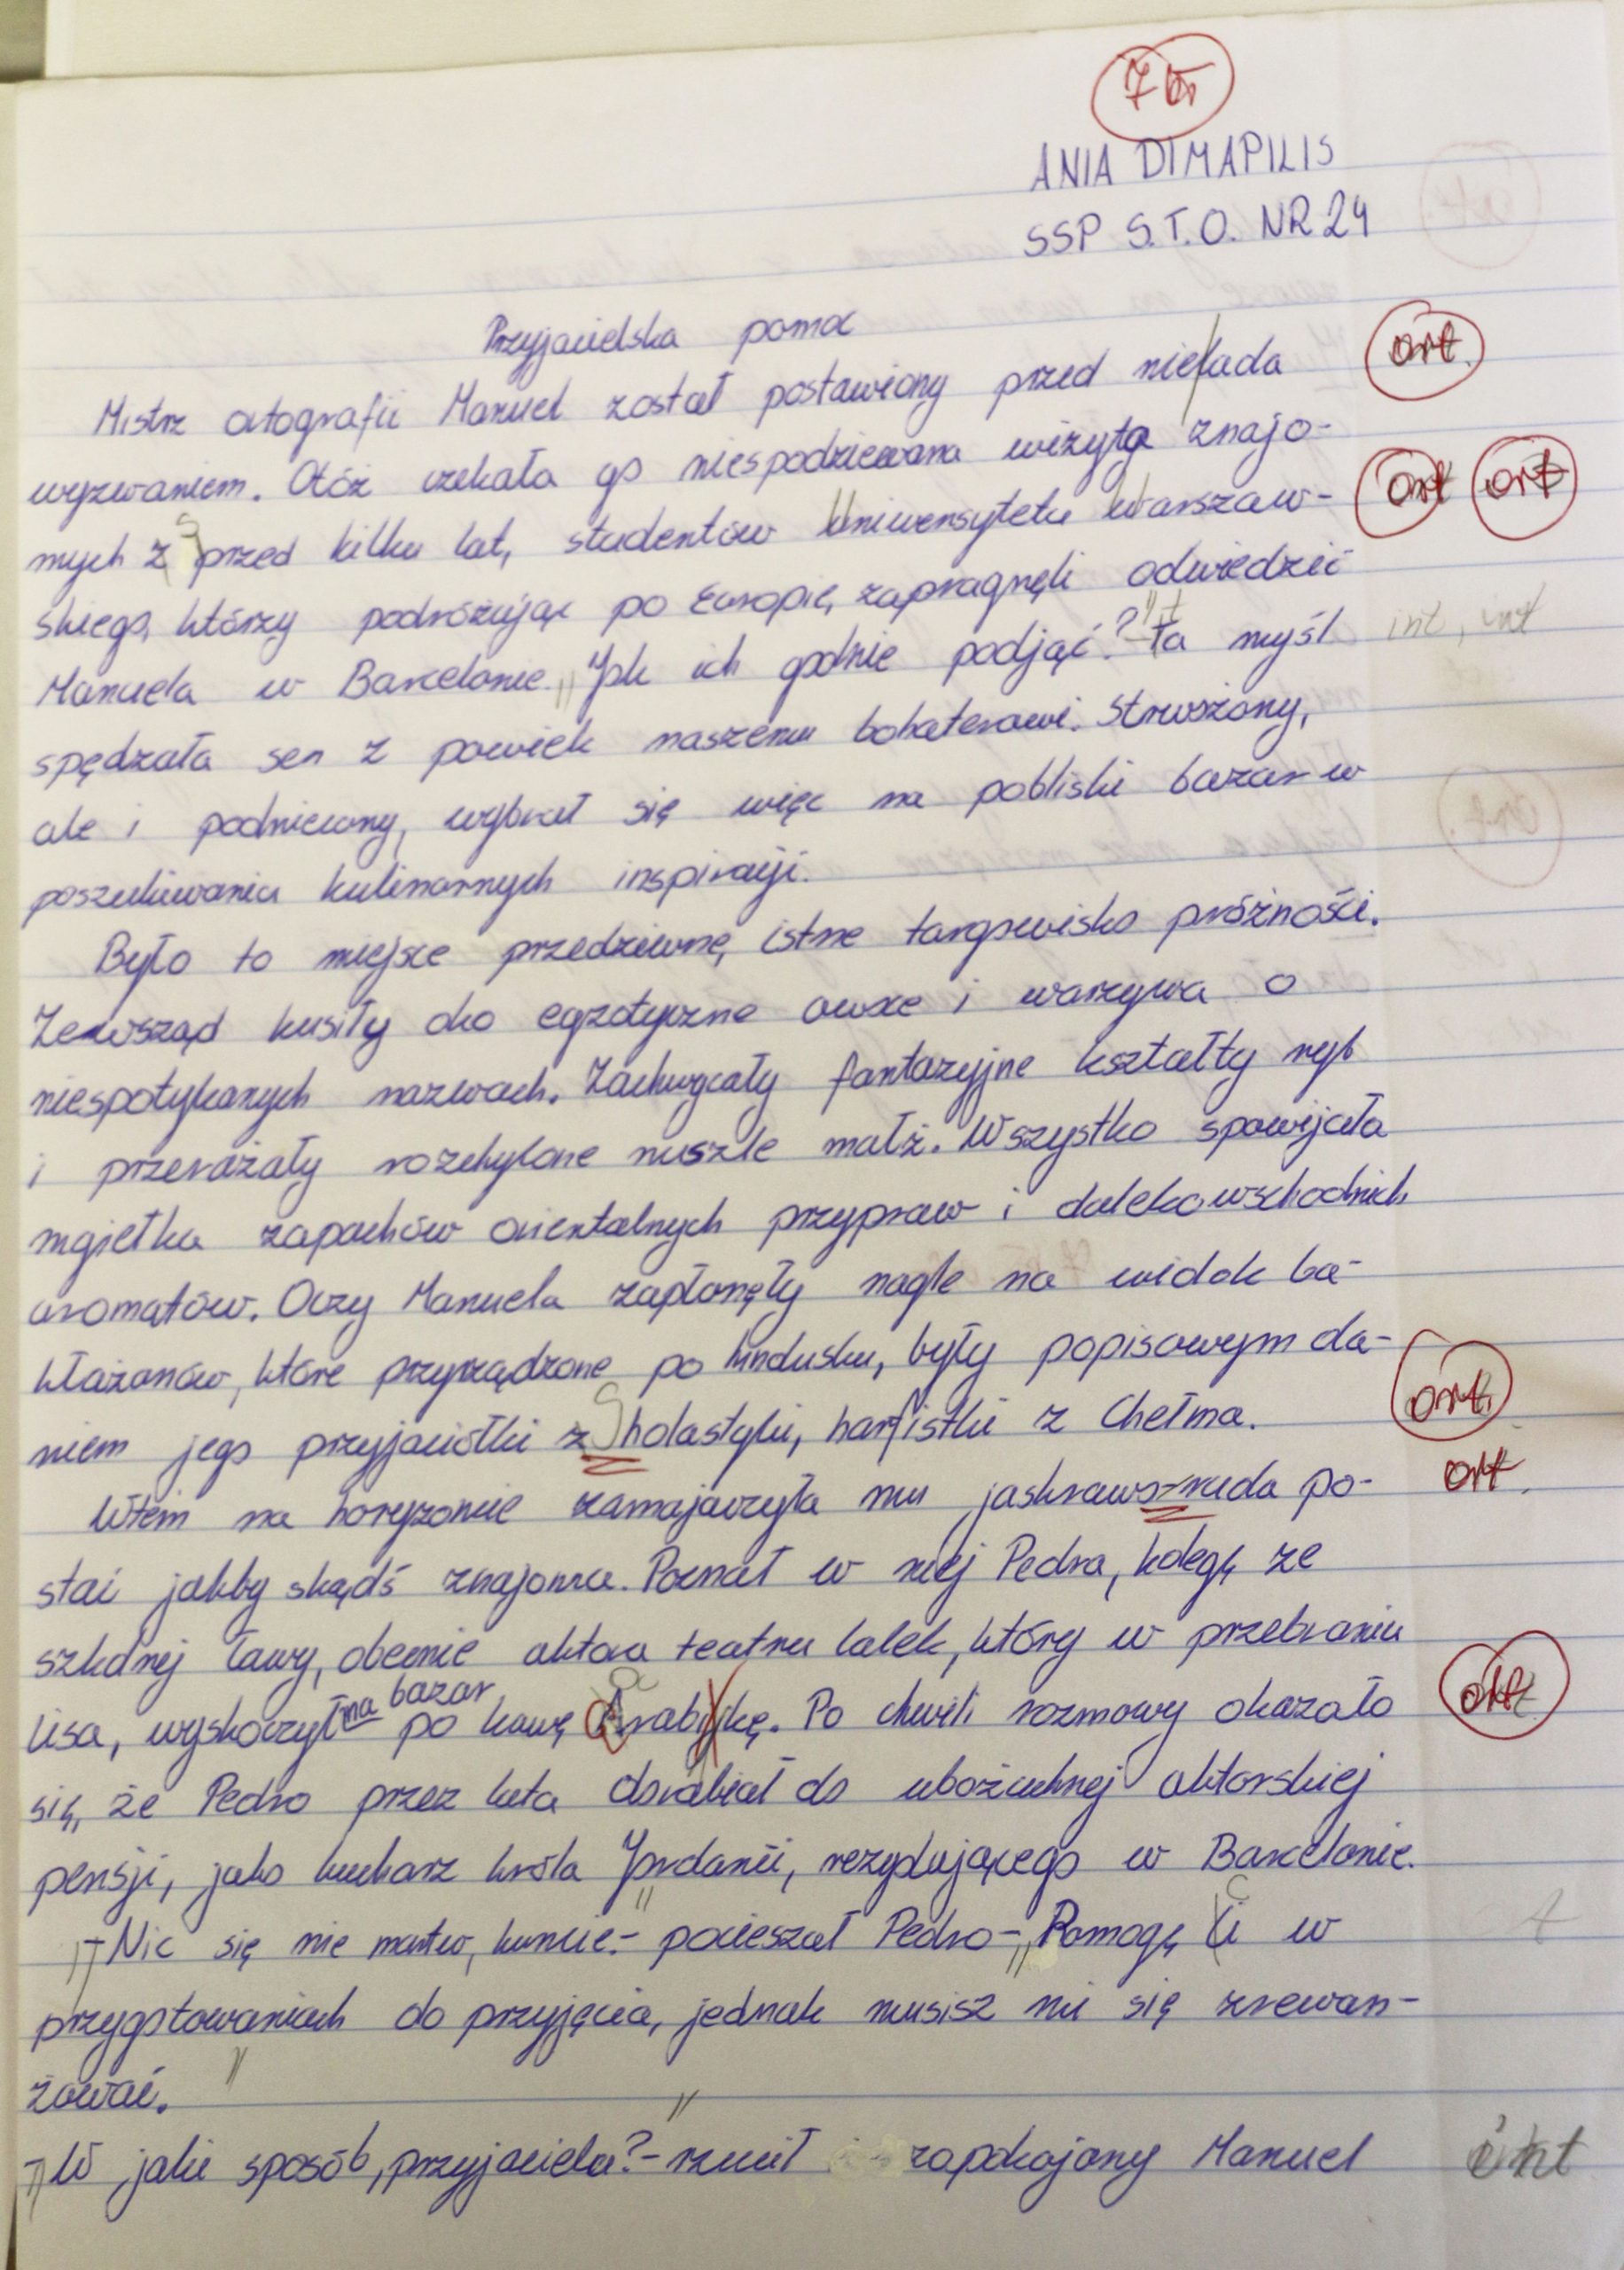 7 br
ANIA DIMAPILIS
SSP S.T.O. NR 24
Przyjacielska pomoc
Mistrz ortografii Manuel został postawiony przed nielada ort.
wyzwaniem. Otóż czekała go niespodziewana wizyta znajo-
mych z przed kilku lat, studentów Uniwersytetu Warszaw- ort ort
skiego, którzy podróżując po Europie, zapragnęli odwiedzić
Manuela w Barcelonie. "Jak ich godnie podjąć?" Ta myśl int, int
spędzała sen z powiek naszemu bohaterowi. Strwożony,
ale i podniecony, wybrał się więc na pobliski bazar w
poszukiwaniu kulinarnych inspiracji.
Było to miejsce przedziwne, istne targowisko próżności.
Zewsząd kusiły oko egzotyczne owoce i warzywa o
niespotykanych nazwach. Zachwycały fantazyjne kształty ryb
i przerażały rozchylone muszle małż. Wszystko spowijała
mgiełka zapachów orientalnych przypraw i dalekowschodnich
aromatów. Oczy Manuela zapłonęły nagle na widok ba-
kłażanów, które przyrządzone po hindusku, były popisowym da-
niem jego przyjaciółki Scholastyki, harfistki z Chełma. ort.
Wtem na horyzoncie zamajaczyła mu jaskraworuda po- ort.
stać jakby skądś znajoma. Poznał w niej Pedra, kolegę ze
szkolnej ławy, obecnie aktora teatru lalek, który w przebraniu
lisa, wyskoczył na bazar po kawę Arabijkę. Po chwili rozmowy okazało ort
się, że Pedro przez lata dorabiał do ubożuchnej aktorskiej
pensji, jako kucharz króla Jordanii, rezydującego w Barcelonie.
"-Nic się nie martw, kumie.- pocieszał Pedro-"Pomogę Ci w
przygotowaniach do przyjęcia, jednak musisz mi się zrewan-
żować."
"-W jaki sposób, przyjacielu?"- rzucił zapokojony Manuel int